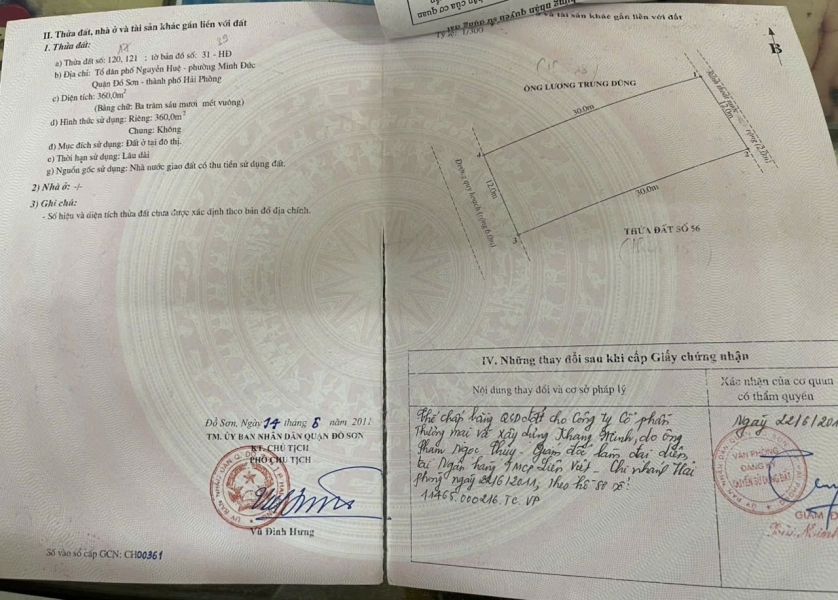 II. Thửa đất, nhà ở và tài sản khác gắn liền với đất
1. Thửa đất:
a) Thửa đất số: 120, 121 ; tờ bản đồ số: 31 - HĐ
b) Địa chỉ: Tổ dân phố Nguyễn Huệ - phường Minh Đức
Quận Đồ Sơn - thành phố Hải Phòng
c) Diện tích: 360,0m²
(Bằng chữ: Ba trăm sáu mươi mét vuông)
d) Hình thức sử dụng: Riêng: 360,0m²
Chung: Không
đ) Mục đích sử dụng: Đất ở tại đô thị.
e) Thời hạn sử dụng: Lâu dài
g) Nguồn gốc sử dụng: Nhà nước giao đất có thu tiền sử dụng đất.
2) Nhà ở: -/-
3) Ghi chú:
- Số hiệu và diện tích thửa đất chưa được xác định theo bản đồ địa chính.
Đồ Sơn, Ngày 14 tháng 6 năm 2011
TM. ỦY BAN NHÂN DÂN QUẬN ĐỒ SƠN
KT. CHỦ TỊCH
PHÓ CHỦ TỊCH
Vũ Đình Hưng
Số vào sổ cấp GCN: CH00361
và tài sản khác gắn liền với đất
1/300
B
ÔNG LƯƠNG TRUNG DŨNG
30.0m
1
12.0m
rộng (2.0m)
2
4
12.0m
Đường quy hoạch (rộng 6.0m)
3
30.0m
THỬA ĐẤT SỐ 56
IV. Những thay đổi sau khi cấp Giấy chứng nhận
Nội dung thay đổi và cơ sở pháp lý
Xác nhận của cơ quan
có thẩm quyền
Thế chấp bằng QSD đất cho Công ty Cổ phần
Thương mại và xây dựng Khang Minh, do ông
Phạm Ngọc Thủy - Giám đốc làm đại diện,
tại Ngân hàng TMCP Liên Việt - Chi nhánh Hải
phòng ngày 22/6/2011, theo hồ sơ số:
11465.000216.TC.VP
Ngày 22/6/201
VĂN PHÒNG
ĐĂNG KÝ
QUYỀN SỬ DỤNG ĐẤT
GIÁM Đ